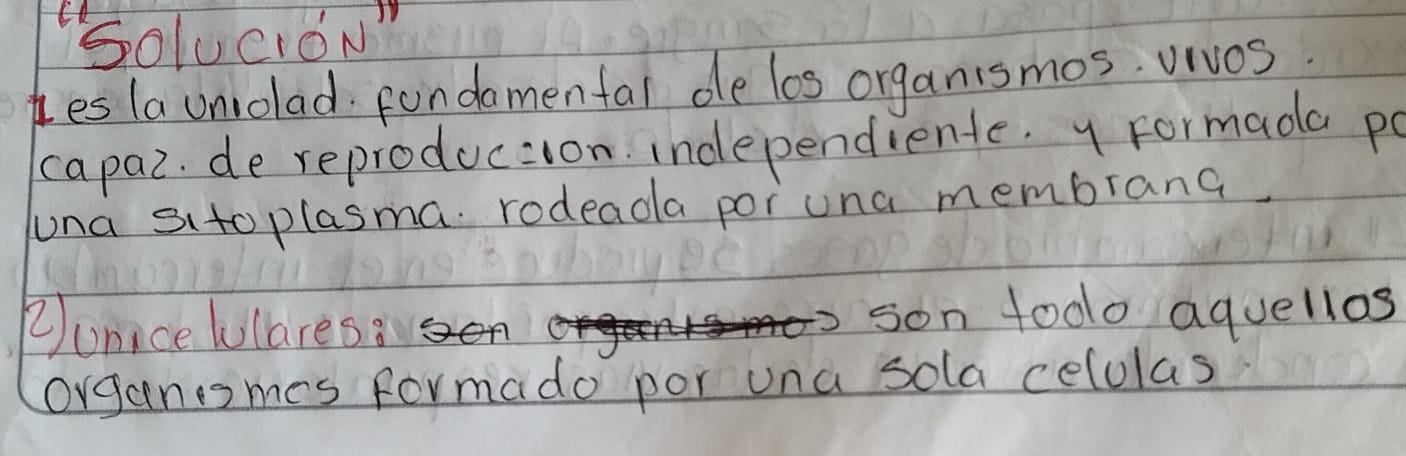 "Solución"
1 es la unidad. fundamental de los organismos. vivos.
capaz. de reproduccion. independiente. y formada po
una sitoplasma. rodeada por una membrana.
2) unicelulares: son organismos son todo aquellos
organismos formado por una sola celulas.